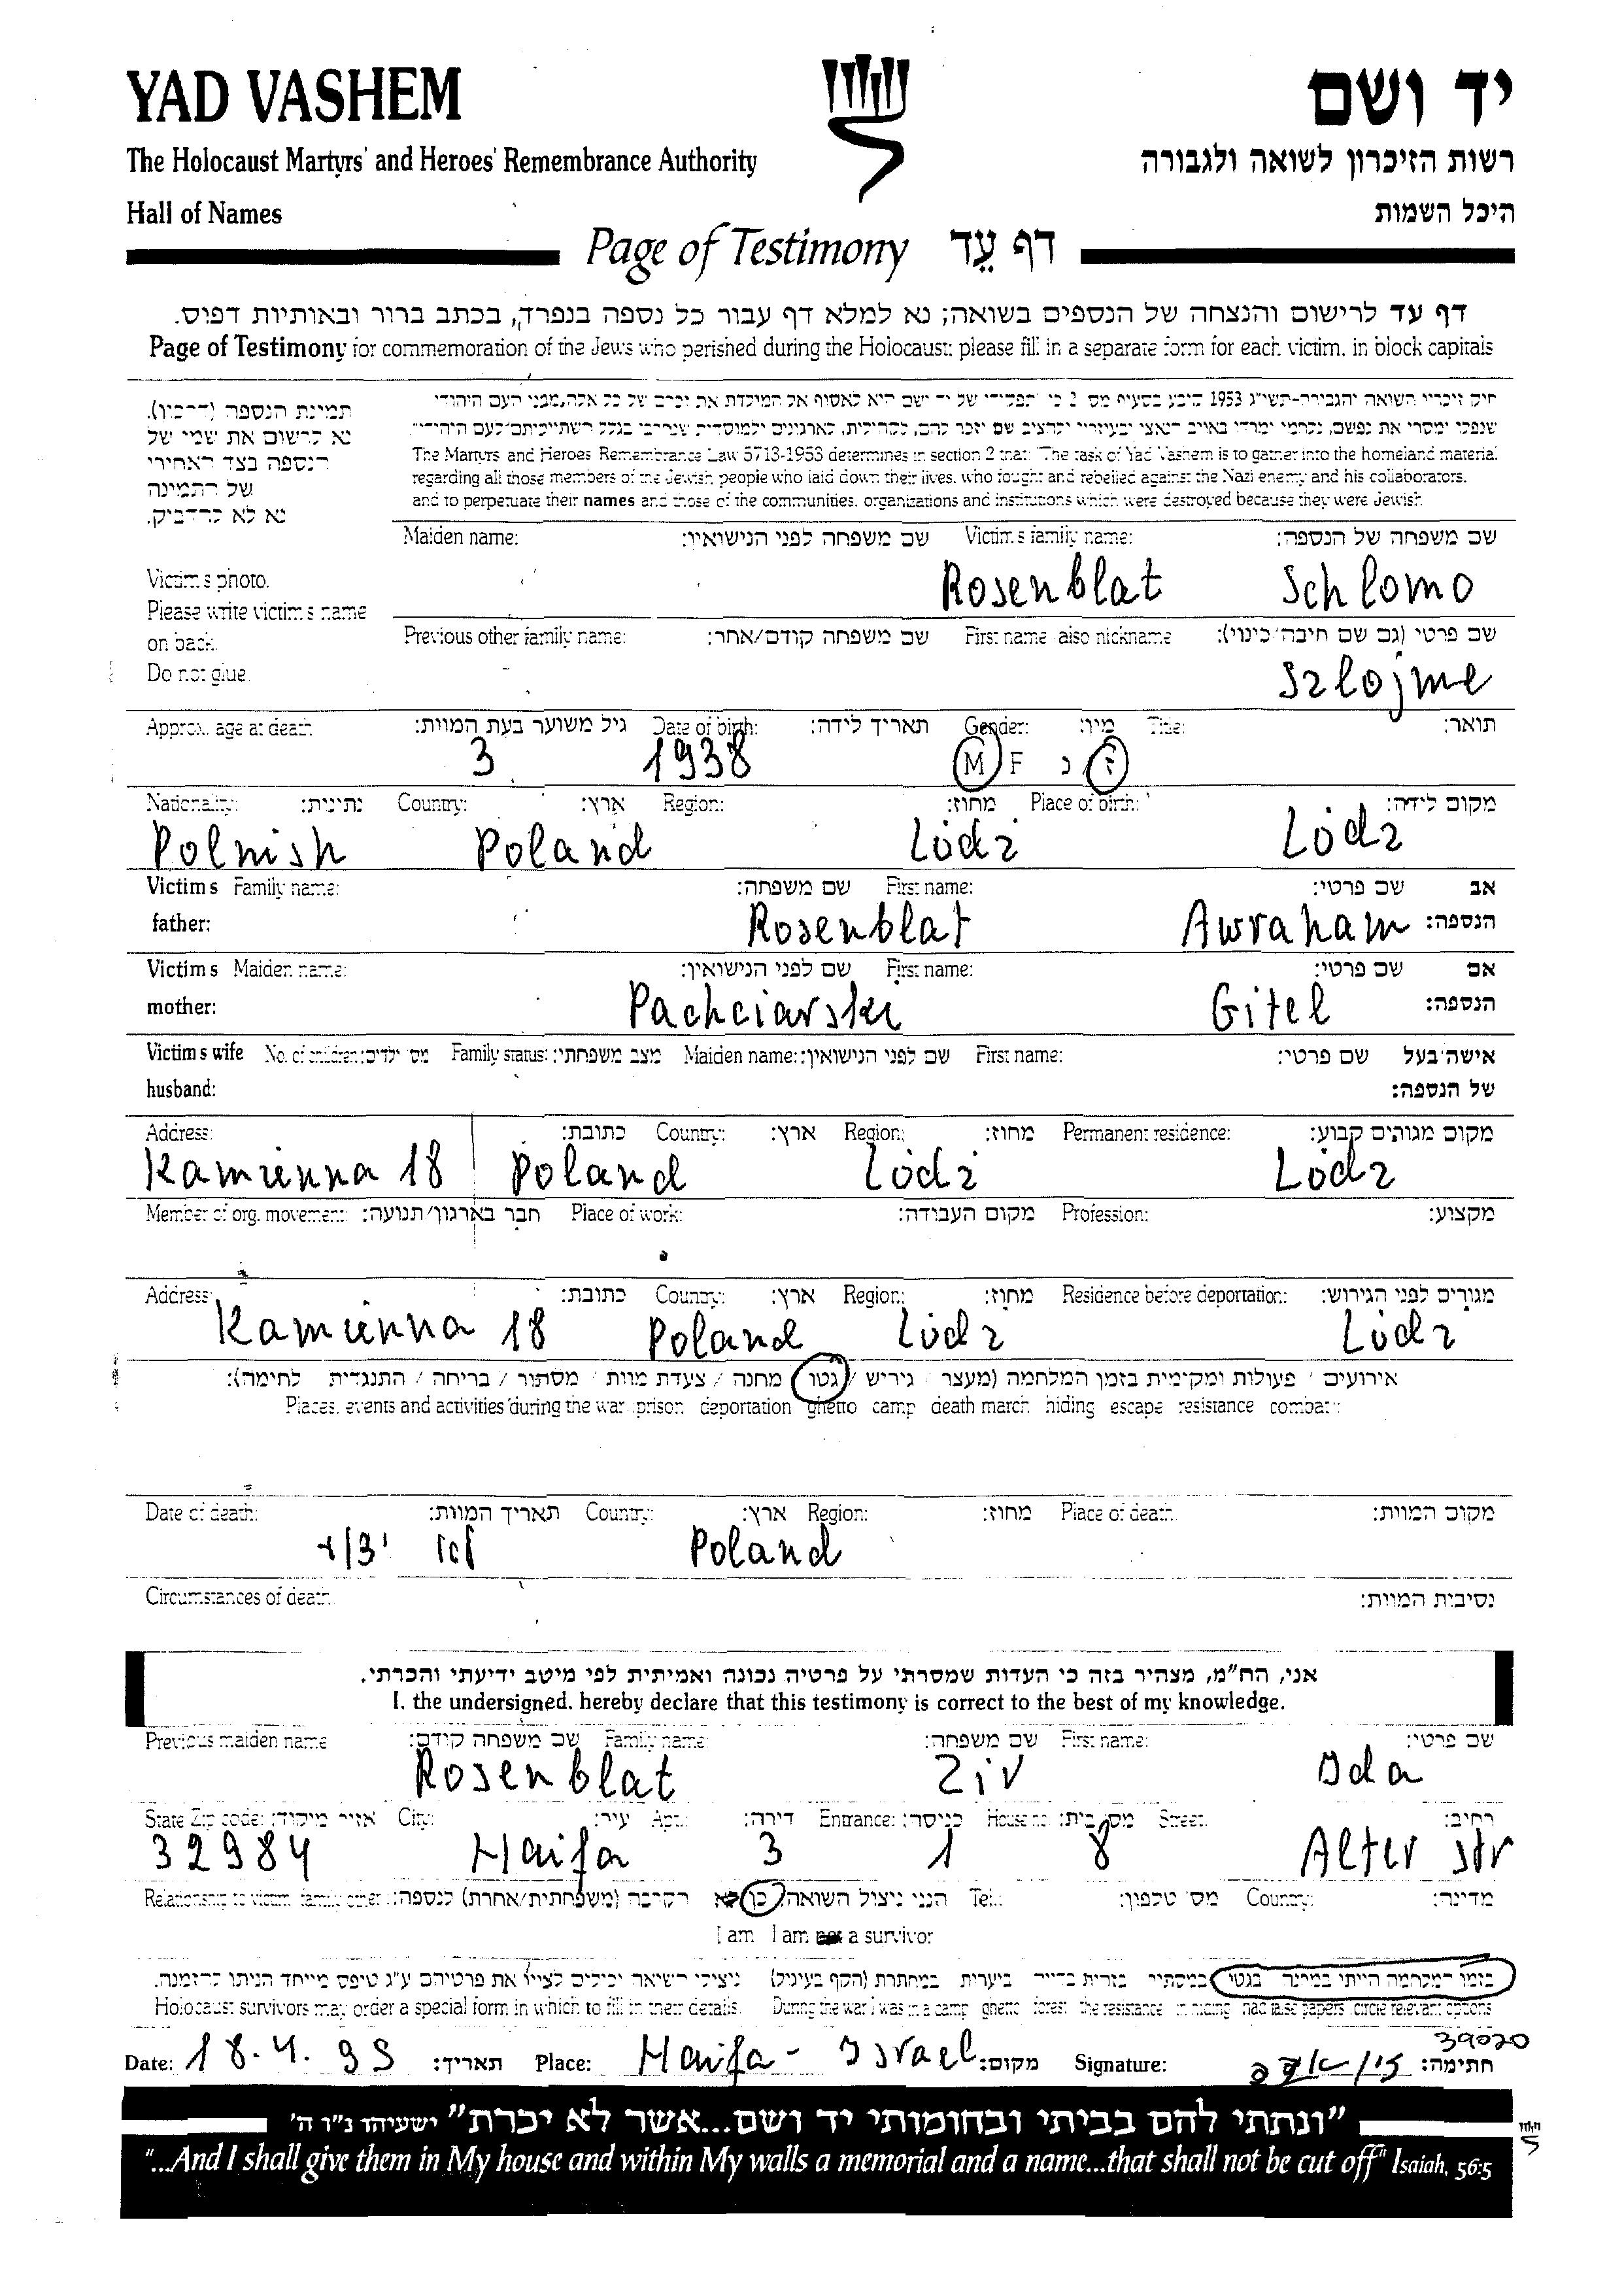 YAD VASHEM
יד ושם
The Holocaust Martyrs' and Heroes' Remembrance Authority
רשות הזיכרון לשואה ולגבורה
Hall of Names
היכל השמות
Page of Testimony דף עֵד
דף עד לרישום והנצחה של הנספים בשואה; נא למלא דף עבור כל נספה בנפרד, בכתב ברור ובאותיות דפוס.
Page of Testimony for commemoration of the Jews who perished during the Holocaust: please fill in a separate form for each victim, in block capitals
The Martyrs and Heroes Remembrance Law 5713-1953 determines in section 2 that: The task of Yad Vashem is to gather into the homeland material
regarding all those members of the Jewish people who laid down their lives, who fought and rebelled against the Nazi enemy and his collaborators,
and to perpetuate their names and those of the communities, organizations and institutions which were destroyed because they were Jewish
תמינת הנספה
נא לרשום את שמי של
הנספה בצד האחירי
של התמינה
נא לא להדביק.
Victim s photo.
Please write victim s name
on back.
Do not glue.
Maiden name: שם משפחה לפני הנישואין: Victim s family name: שם משפחה של הנספה:
Rosenblat Schlomo
Previous other family name: שם משפחה קודם/אחר: First name also nickname שם פרטי (גם שם חיבה/כינוי):
Szlojme
Approx. age at death: גיל משוער בעת המוות: Date of birth: תאריך לידה: Gender: מין: Title: תואר:
3 1938 M F נ ז
Nationality: נתינות: Country: ארץ: Region: מחוז: Place of birth: מקום לידה:
Polnish Poland Lódź Lódź
Victim s Family name: שם משפחה: First name: שם פרטי: אב
father: Rosenblat Awraham הנספה:
Victim s Maiden name: שם לפני הנישואין: First name: שם פרטי: אם
mother: Pachciarski Gitel הנספה:
Victim s wife No. of children: מס' ילדים: Family status: מצב משפחתי: Maiden name: שם לפני הנישואין: First name: שם פרטי: אישה/בעל
husband: של הנספה:
Address: כתובת: Country: ארץ: Region: מחוז: Permanent residence: מקום מגורים קבוע:
Kamienna 18 Poland Lódź Lódź
Member of org. movement: חבר בארגון/תנועה: Place of work: מקום העבודה: Profession: מקצוע:
Address: כתובת: Country: ארץ: Region: מחוז: Residence before deportation: מגורים לפני הגירוש:
Kamienna 18 Poland Lódź Lódź
Places, events and activities during the war prison deportation ghetto camp death march hiding escape resistance combat
Date of death: תאריך המוות: Country: ארץ: Region: מחוז: Place of death: מקום המוות:
Poland
Circumstances of death: נסיבות המוות:
אני, הח"מ, מצהיר בזה כי העדות שמסרתי על פרטיה נכונה ואמיתית לפי מיטב ידיעתי והכרתי.
I, the undersigned, hereby declare that this testimony is correct to the best of my knowledge.
Previous maiden name שם משפחה קודם: Family name: שם משפחה: First name: שם פרטי:
Rosenblat Ziv Ida
State Zip code: מיקוד: City: עיר: Apt.: דירה: Entrance: כניסה: House no. מס' בית: Street:
32984 Haifa 3 1 8 Alter str
Relationship to victim family other: (משפחתית/אחרת) לנספה: הנני ניצול השואה: כן Tel.: מס' טלפון: Country: מדינה:
I am I am not a survivor
Holocaust survivors may order a special form in which to fill in their details. During the war I was in a camp ghetto forest the resistance in hiding had false papers circle relevant options
39020
Date: 18.4.99 תאריך: Place: Haifa - Israel מקום: Signature: חתימה:
"ונתתי להם בביתי ובחומותי יד ושם...אשר לא יכרת" ישעיהו נ"ו ה'
"...And I shall give them in My house and within My walls a memorial and a name...that shall not be cut off" Isaiah, 56:5